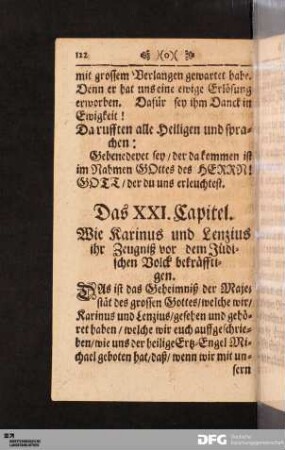 112 (o)
mit grossem Verlangen gewartet habe.
Denn er hat uns eine ewige Erlösung
erworben. Dafür sey ihm Danck in
Ewigkeit!
Da rufften alle Heiligen und spra-
chen:
Gebenedeyet sey / der da kommen ist
im Nahmen GOttes des HERRN!
GOTT / der du uns erleuchtest.
Das XXI. Capitel.
Wie Karinus und Lenzius
ihr Zeugniß vor dem Jüdi-
schen Volck bekräffti-
gen.
DAs ist das Geheimniß der Maje-
stät des grossen Gottes / welche wir /
Karinus und Lenzius / gesehen und gehö-
ret haben / welche wir euch auffgeschrie-
ben / wie uns der heilige Ertz-Engel Mi-
chael geboten hat / daß / wenn wir mit un-
sern
DFG Deutsche
Forschungsgemeinschaft